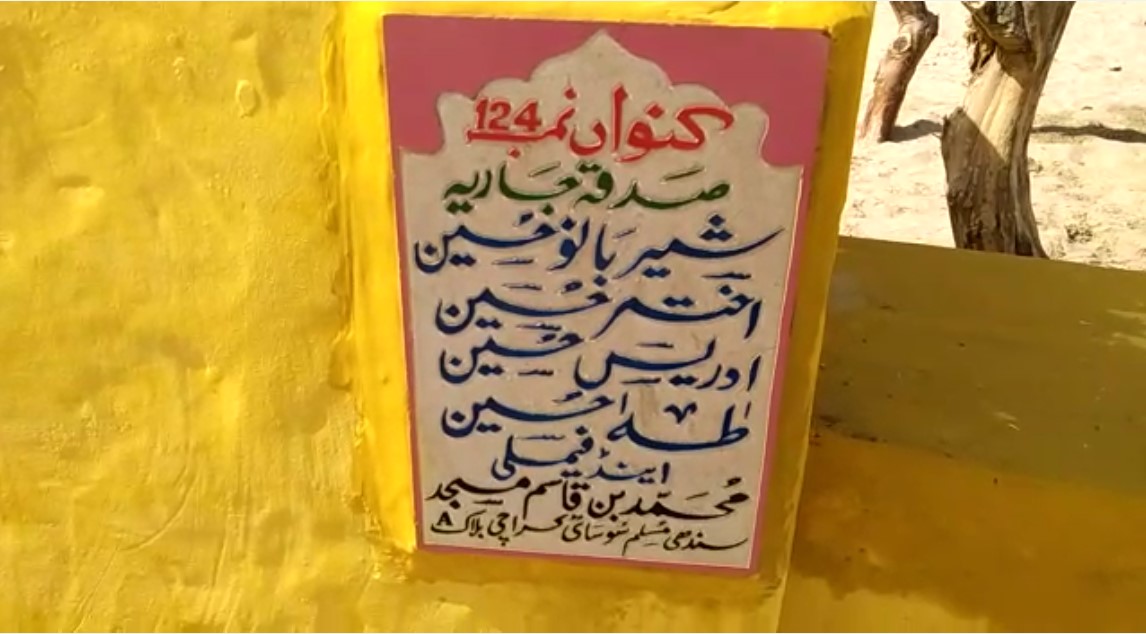 کنواں نمبر 124
صدقہ جاریہ
شیر بانو حسین
اختر حسین
ادریس حسین
طٰہٰ حسین
اینڈ فیملی
مُحمّد بن قاسم مسجد
سندھی مُسلم سُوسائٹی کراچی بلاک A